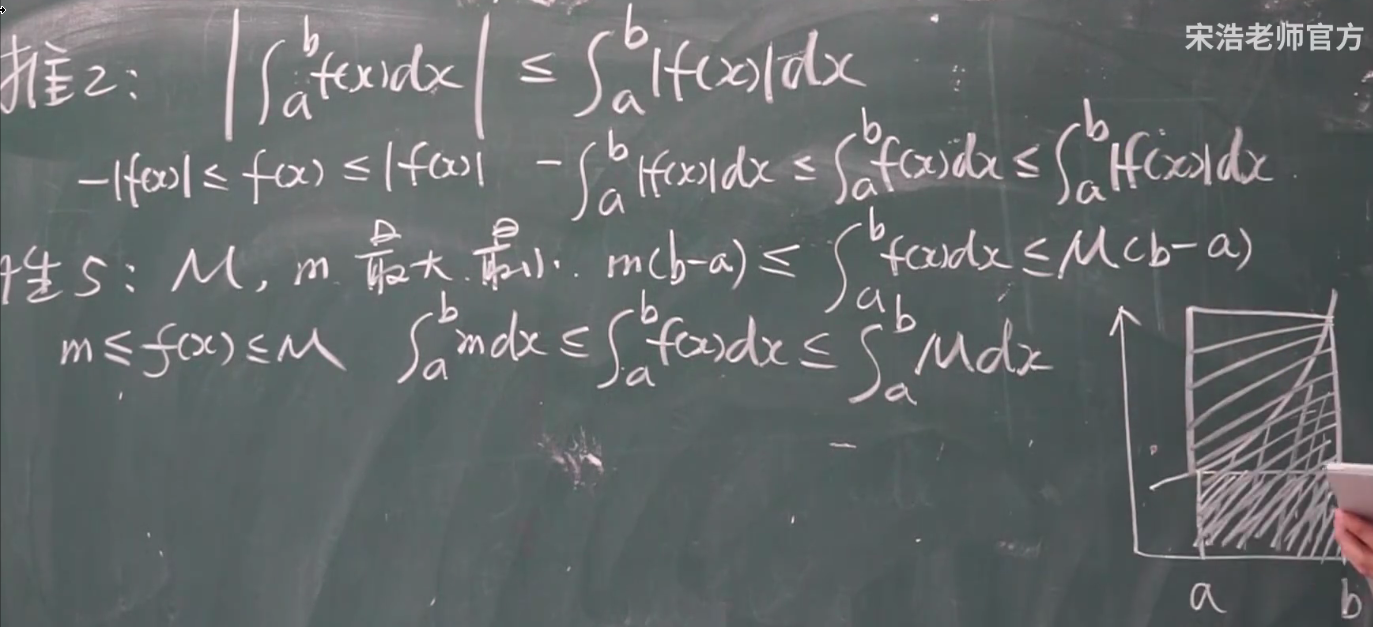 宋浩老师官方
推2: |∫ₐᵇ f(x)dx| ≤ ∫ₐᵇ |f(x)|dx
-|f(x)| ≤ f(x) ≤ |f(x)|  -∫ₐᵇ |f(x)|dx ≤ ∫ₐᵇ f(x)dx ≤ ∫ₐᵇ |f(x)|dx
性5: M, m 最大 最小. m(b-a) ≤ ∫ₐᵇ f(x)dx ≤ M(b-a)
m ≤ f(x) ≤ M  ∫ₐᵇ mdx ≤ ∫ₐᵇ f(x)dx ≤ ∫ₐᵇ Mdx
a b